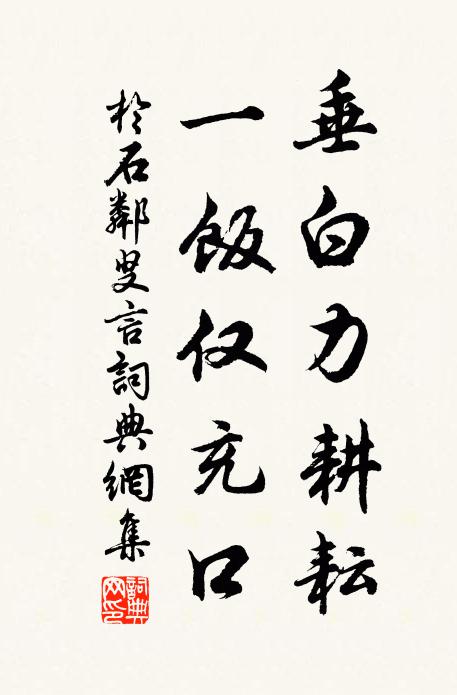 垂白力耕耘
一飯仅充口
於石鄰叟言詞典網集
詞典
网印